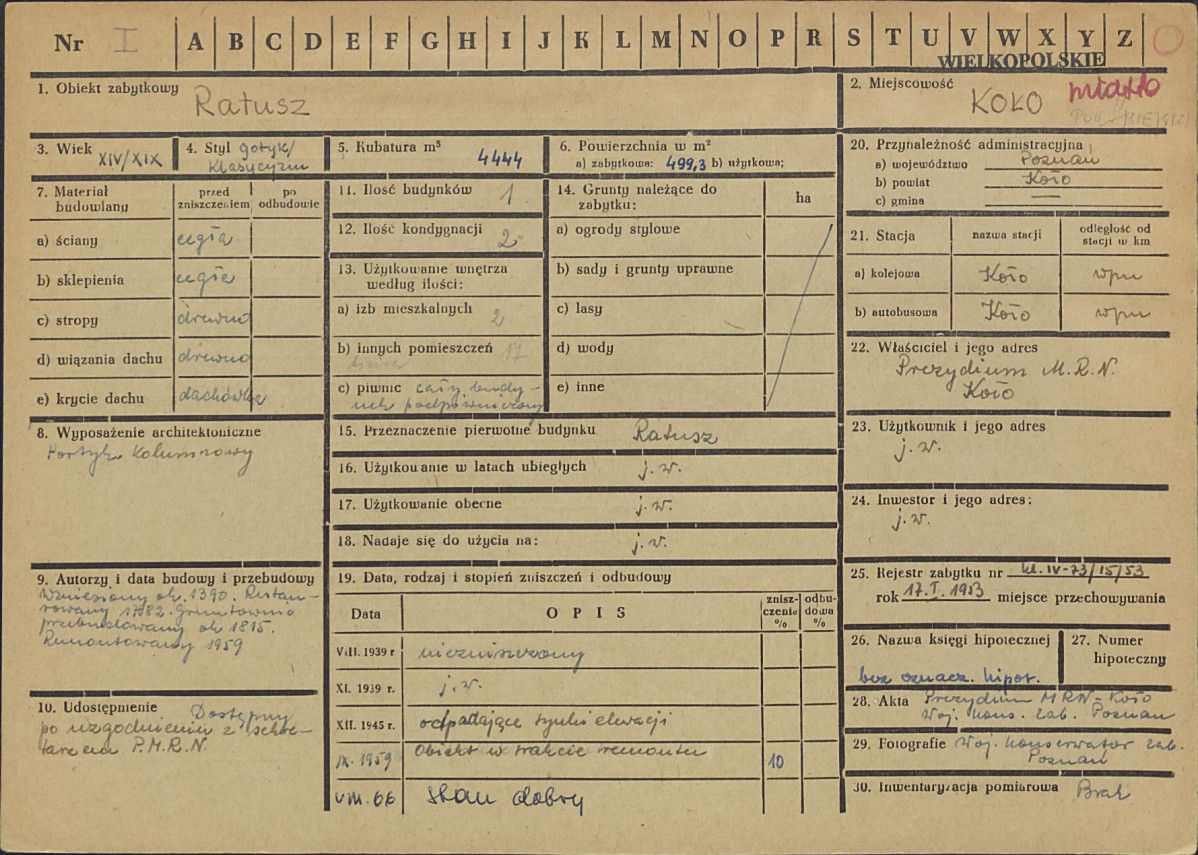 Nr I A B C D E F G H I J K L M N O P R S T U V W X Y Z
WIELKOPOLSKIE
1. Obiekt zabytkowy Ratusz
2. Miejscowość KOŁO miasto
3. Wiek XIV/XIX
4. Styl gotyk/
klasycyzm
5. Kubatura m³ 4444
6. Powierzchnia w m²
a) zabytkowa: 499,3 b) użytkowa:
7. Materiał
budowlany
przed
zniszczeniem
po
odbudowie
a) ściany cegła
b) sklepienia cegła
c) stropy drewno
d) wiązania dachu drewno
e) krycie dachu dachówka
8. Wyposażenie architektoniczne
Portyk kolumnowy
9. Autorzy i data budowy i przebudowy
Wzniesiony ok. 1390. Restau-
rowany 1782. Gruntownie
przebudowany ok 1815.
Remontowany 1959
10. Udostępnienie Dostępny
po uzgodnieniu z sekre-
tarzem P.M.R.N.
11. Ilość budynków 1
12. Ilość kondygnacji 2
13. Użytkowanie wnętrza
według ilości:
a) izb mieszkalnych 2
b) innych pomieszczeń 17
c) piwnic cały budy-
nek podpiwniczony
14. Grunty należące do
zabytku:
ha
a) ogrody stylowe
b) sady i grunty uprawne
c) lasy
d) wody
e) inne
15. Przeznaczenie pierwotne budynku Ratusz
16. Użytkowanie w latach ubiegłych j. w.
17. Użytkowanie obecne j. w.
18. Nadaje się do użycia na: j. w.
19. Data, rodzaj i stopień zniszczeń i odbudowy
Data
OPIS
znisz-
czenie
%
odbu-
dowa
%
VIII. 1939 r niezniszczony
XI. 1939 r. j. w.
XII. 1945 r. odpadające tynki elewacji
IX. 1959 Obiekt w trakcie remontu 10
VIII. 66 stan dobry
20. Przynależność administracyjna
a) województwo Poznań
b) powiat Koło
c) gmina —
21. Stacja
nazwa stacji
odległość od
stacji w km
a) kolejowa Koło
b) autobusowa Koło
22. Właściciel i jego adres
Prezydium M.R.N.
Koło
23. Użytkownik i jego adres
j. w.
24. Inwestor i jego adres:
j. w.
25. Rejestr zabytku nr kl. IV-73/15/53
rok 17.I. 1953 miejsce przechowywania
26. Nazwa księgi hipotecznej
bez oznacz. hipot.
27. Numer
hipoteczny
28. Akta Prezydium MRN-Koło
Woj. Kons. Zab. Poznań
29. Fotografie Woj. Konserwator Zab.
Poznań
30. Inwentaryzacja pomiarowa Brak